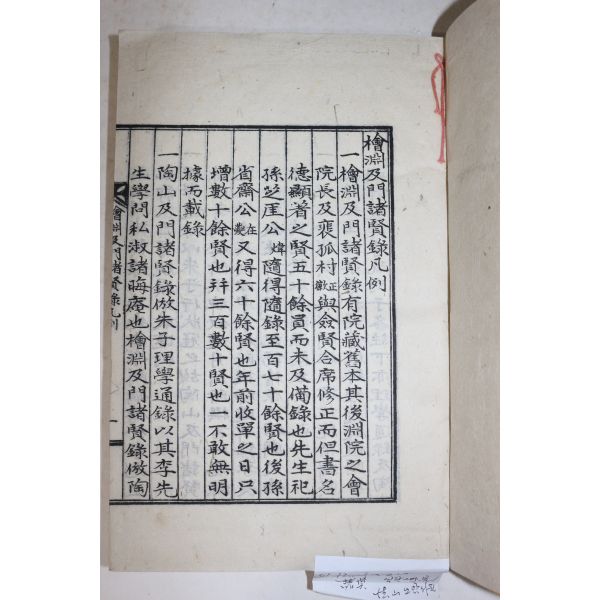 檜淵及門諸賢錄凡例
一檜淵及門諸賢錄有院藏舊本其後淵院之會
院長及裵孤村正歡與僉賢合席修正而但書名
德顯著之賢五十餘員而未及備錄也先生祀
孫芝厓公煒隨得隨錄至百七十餘賢也後孫
省齋公在夔又得六十餘賢也年前收單之日只
增數十餘賢也幷三百數十賢也一不敢無明
據而載錄
一陶山及門諸賢錄倣朱子理學通錄以其李先
生學問私淑諸晦庵也檜淵及門諸賢錄倣陶
檜淵及門諸賢錄凡例
一